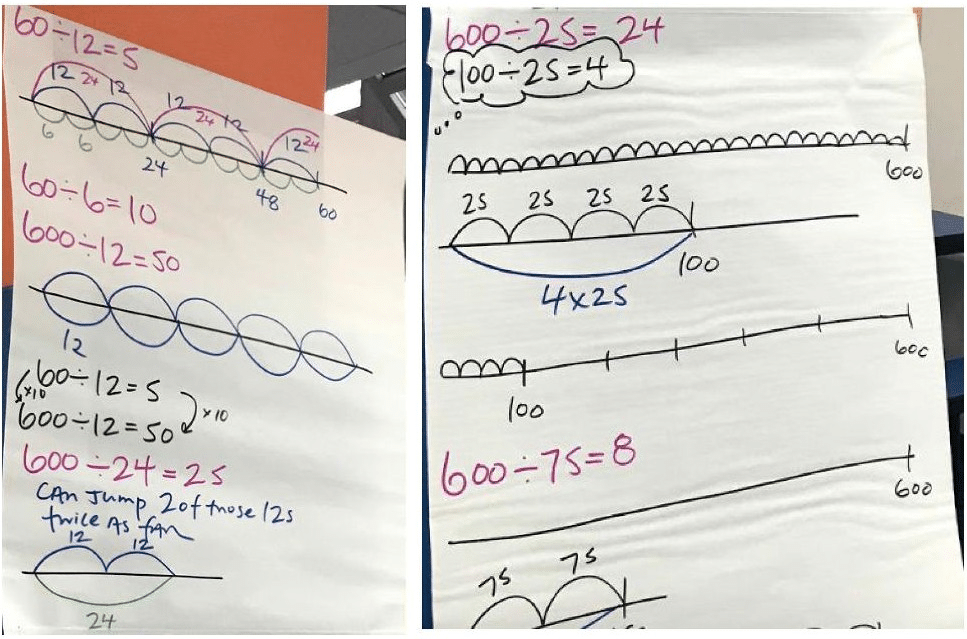 60÷12=5
12 24 12 12 24 12 12 24
6 6
24 48 60
60÷6=10
600÷12=50
12
60÷12=5
x10 x10
600÷12=50
600÷24=25
CAN Jump 2 of those 12s
twice As far
12 12
24
600÷25=24
100÷25=4
600
25 25 25 25
100
4x25
600
100
600÷75=8
600
75 75